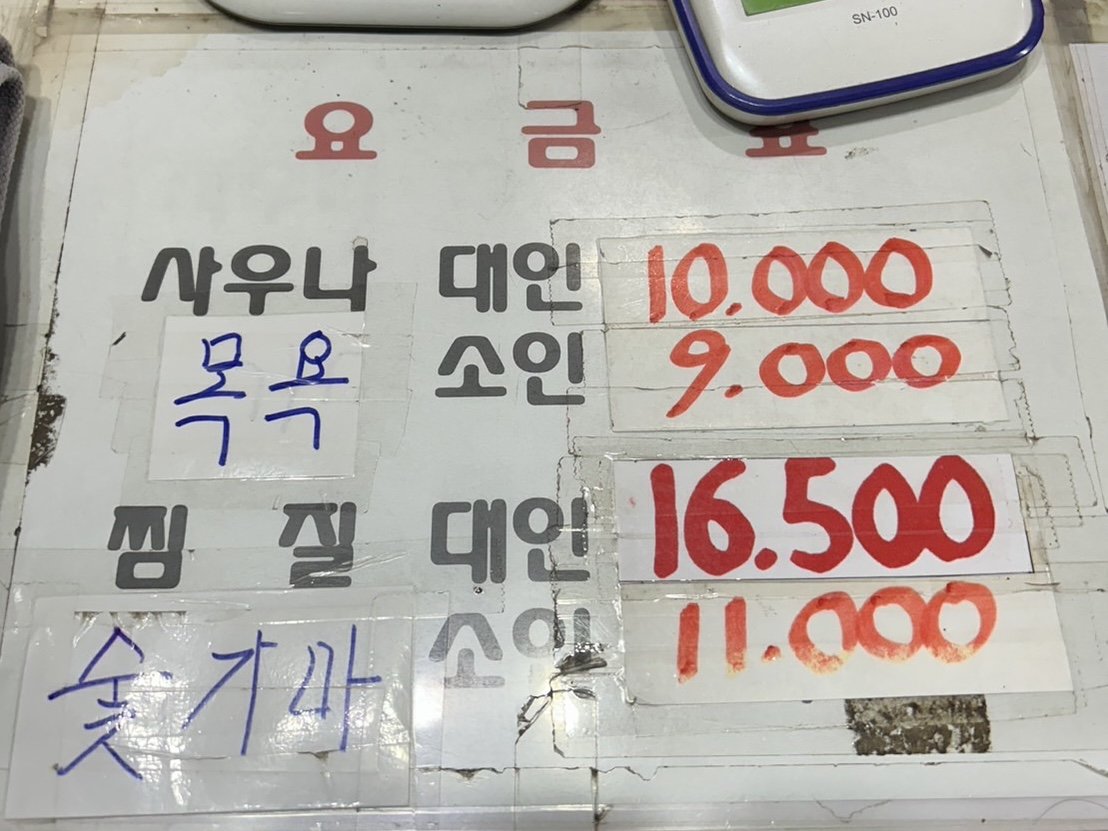 SN-100
요 금 표
사우나 대인 10.000
목욕 소인 9.000
찜 질 대인 16.500
숯가마 소인 11.000